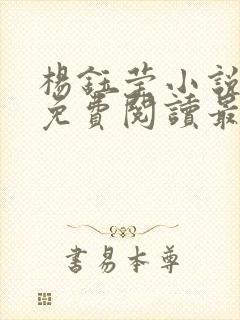 楊鈺莹小說
免費閱讀最
書易本尊